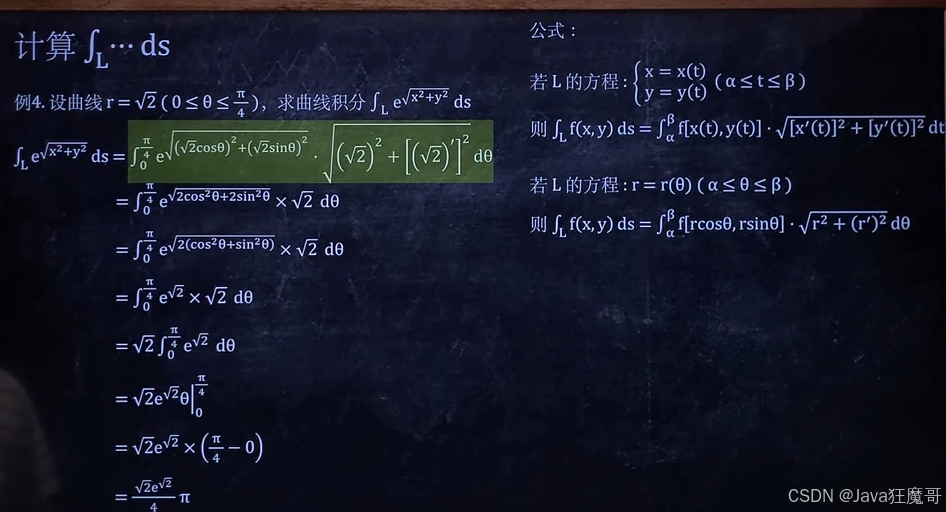 计算 ∫_L ⋯ ds
例4. 设曲线 r = √2 ( 0 ≤ θ ≤ π/4 )，求曲线积分 ∫_L e^√(x²+y²) ds
∫_L e^√(x²+y²) ds = ∫_0^(π/4) e^√((√2cosθ)²+(√2sinθ)²) · √((√2)² + [(√2)′]²) dθ
= ∫_0^(π/4) e^√(2cos²θ+2sin²θ) × √2 dθ
= ∫_0^(π/4) e^√(2(cos²θ+sin²θ)) × √2 dθ
= ∫_0^(π/4) e^√2 × √2 dθ
= √2 ∫_0^(π/4) e^√2 dθ
= √2e^√2 θ|_0^(π/4)
= √2e^√2 × (π/4 − 0)
= (√2e^√2)/4 π
公式：
若 L 的方程 : { x = x(t) y = y(t) ( α ≤ t ≤ β )
则 ∫_L f(x, y) ds = ∫_α^β f[x(t), y(t)] · √([x′(t)]² + [y′(t)]²) dt
若 L 的方程 : r = r(θ) ( α ≤ θ ≤ β )
则 ∫_L f(x, y) ds = ∫_α^β f[rcosθ, rsinθ] · √(r² + (r′)²) dθ
CSDN @Java狂魔哥